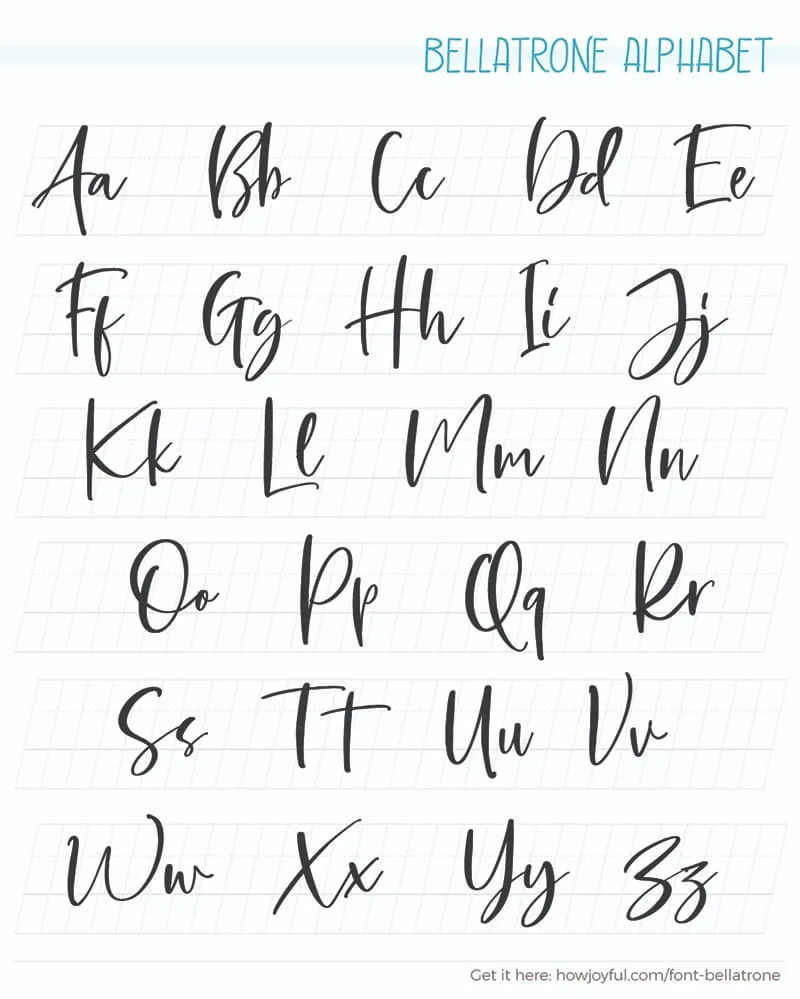 BELLATRONE ALPHABET
Aa Bb Cc Dd Ee
Ff Gg Hh Ii Jj
Kk Ll Mm Nn
Oo Pp Qq Rr
Ss Tt Uu Vv
Ww Xx Yy Zz
Get it here: howjoyful.com/font-bellatrone